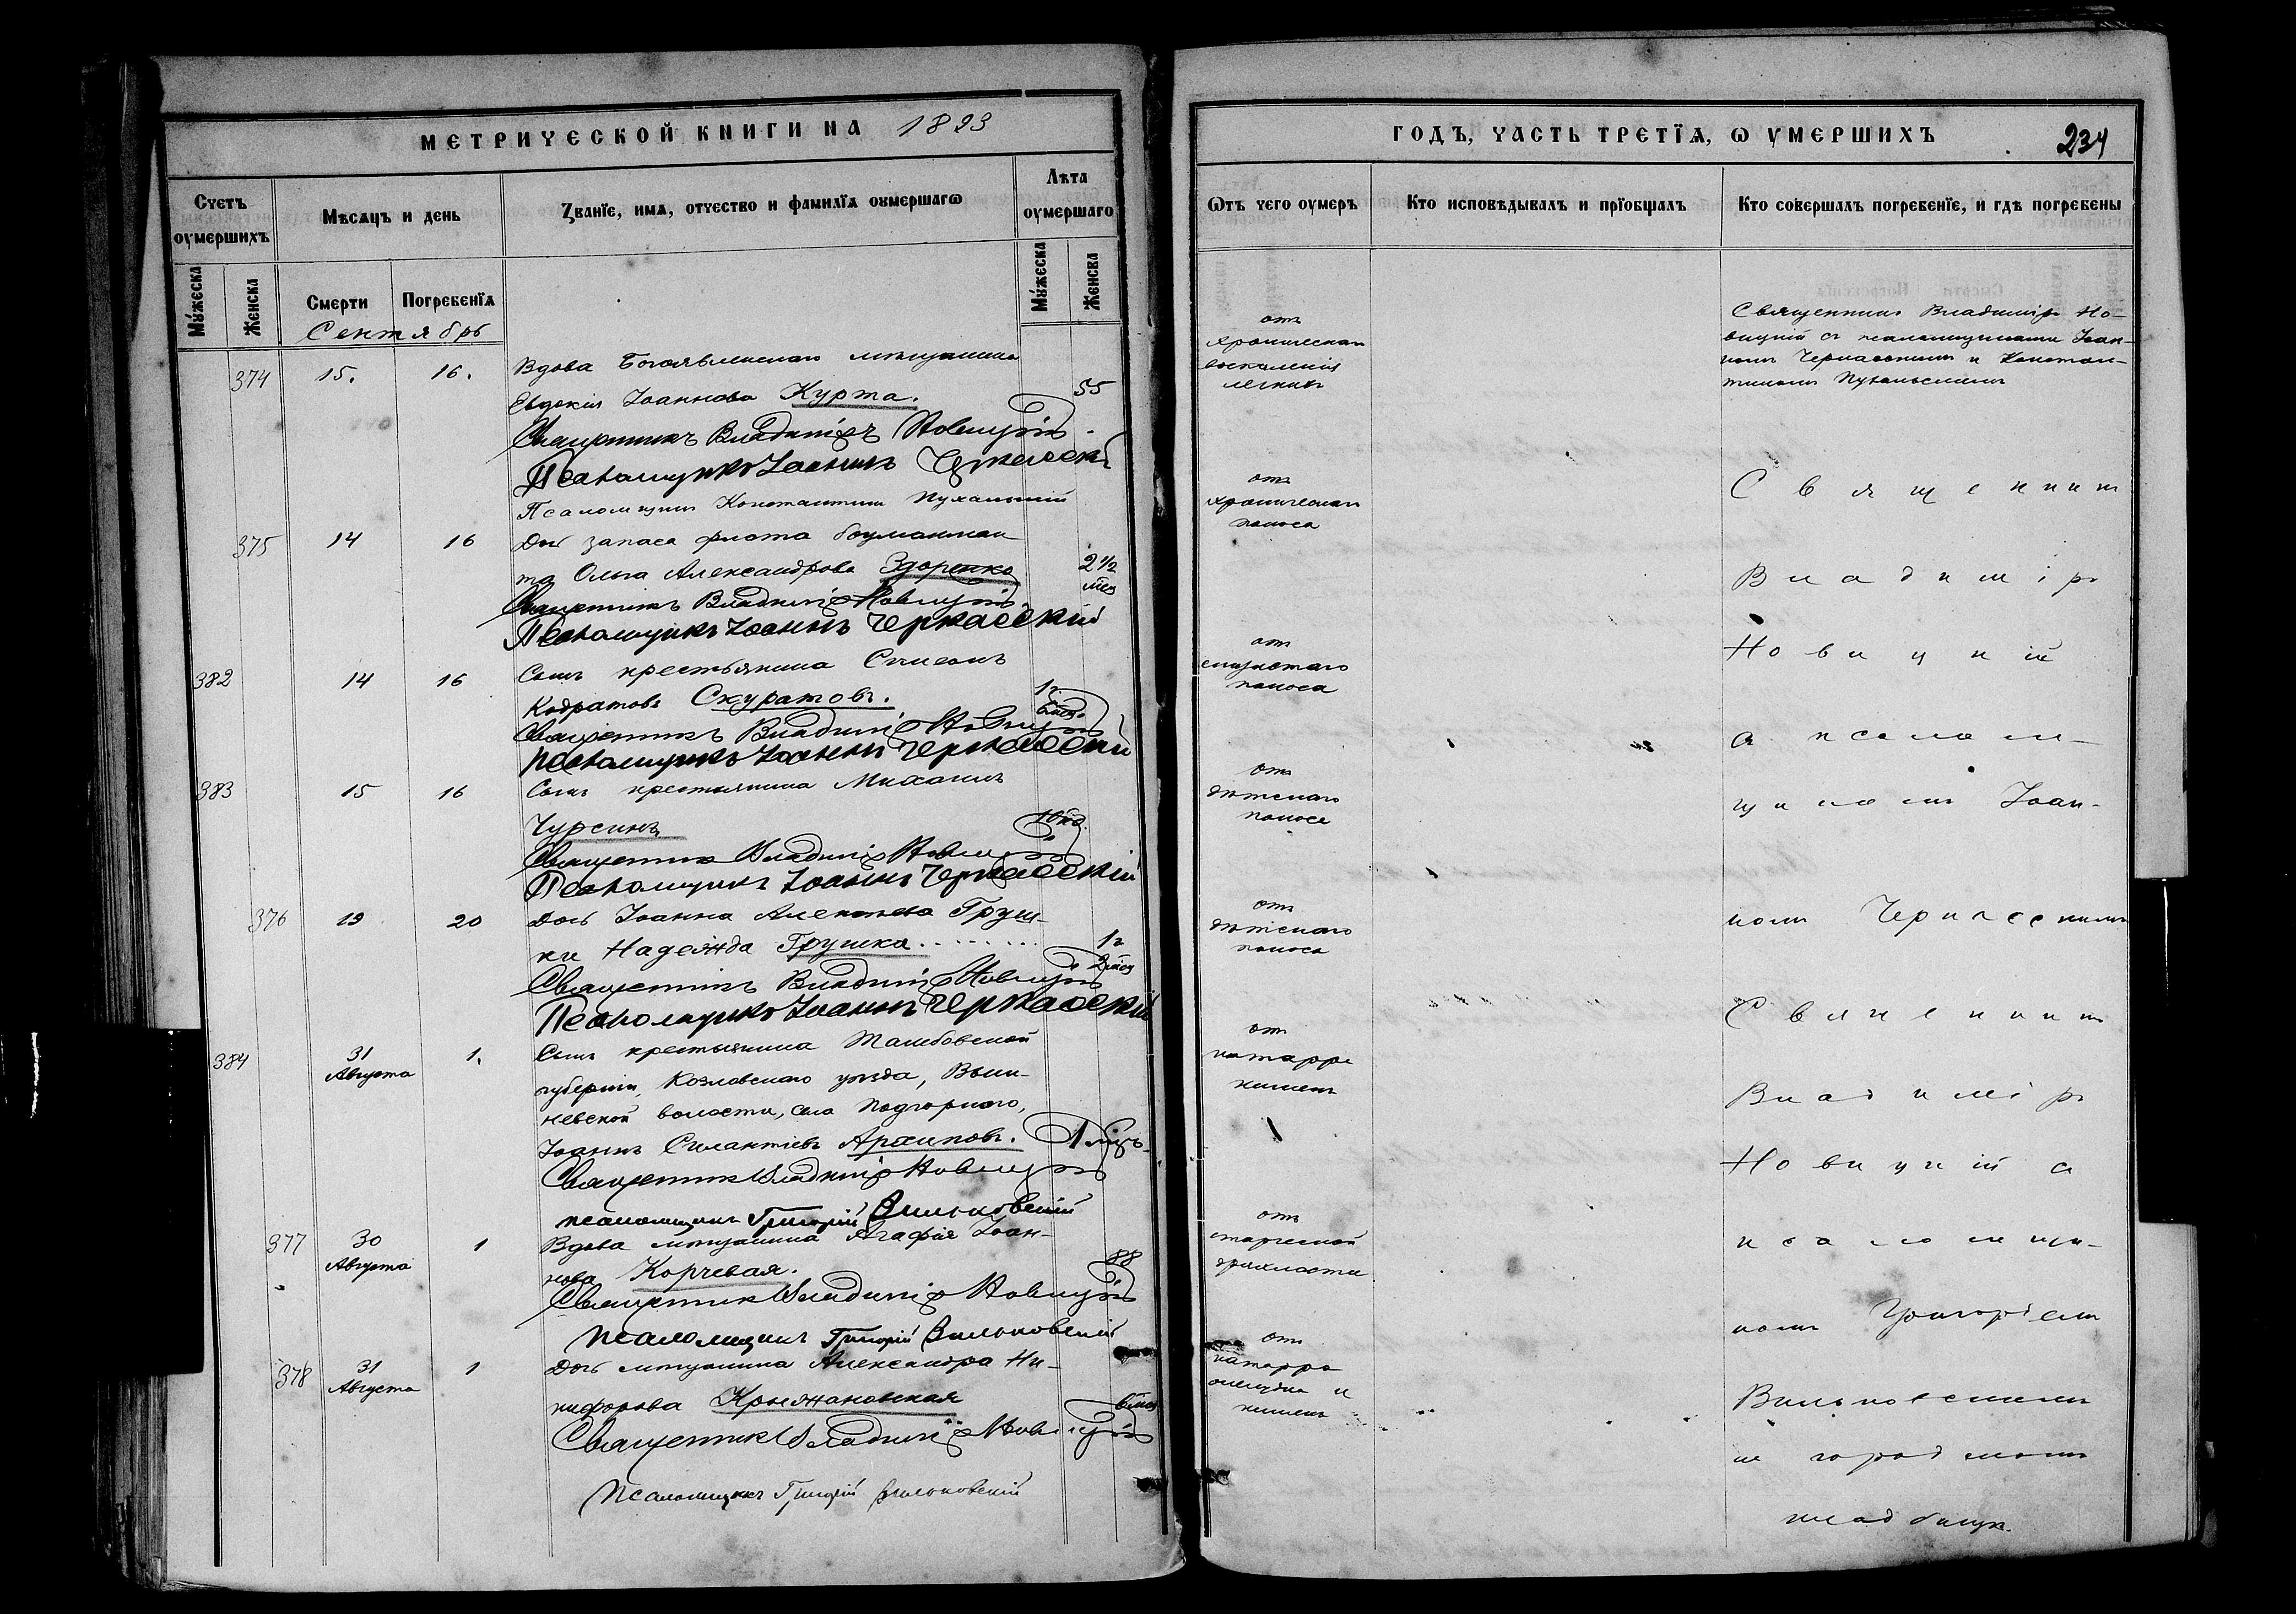 МЕТРИЧЕСКОЙ КНИГИ НА 1893
Счетъ оумершихъ
Мѣсяцъ и день
Званїе, имя, отчество и фамилїя оумершагѡ
Лѣта оумершаго
Мужеска
Женска
Смерти
Погребенїя
Мужеска
Женска
Сентябрь
374 15. 16. Вдова Богоявленскаго мѣщанина
Евдокія Іоаннова Курта. 55
Священникъ Владиміръ Новицкій
Псаломщикъ Іоаннъ Черкасскій
Псаломщикъ Константинъ Пухальскій
375 14 16 Дочь запаса флота боцманман-
та Ольга Александрова Здоренко 2 1/2 мѣс
Священникъ Владиміръ Новицкій
Псаломщикъ Іоаннъ Черкасскій
382 14 16 Сынъ крестьянина Симеонъ
Кодратовъ Скуратовъ. 1г.
Священникъ Владиміръ Новицкій
Псаломщикъ Іоаннъ Черкасскій
383 15 16 Сынъ крестьянина Михаилъ
Чурсинъ
Священникъ Владиміръ Новицкій
Псаломщикъ Іоаннъ Черкасскій
376 19 20 Дочь Іоанна Алексѣева Груш-
ки Надежда Грушка 1г 2 мѣс
Священникъ Владиміръ Новицкій
Псаломщикъ Іоаннъ Черкасскій
384 31 Августа 1. Сынъ крестьянина Тамбовской
губерніи, Козловскаго уѣзда,
волости, села Подгорнаго,
Іоаннъ Силантіевъ Архиповъ. 1 мѣсъ
Священникъ Владиміръ Новицкій
псаломщикъ Григорій Вильковскій
377 30 Августа 1 Вдова мѣщанина Агафія Іоан-
нова Корчевая. 88
Священникъ Владиміръ Новицкій
псаломщикъ Григорій Вильковскій
378 31 Августа 1 Дочь мѣщанина Александра Ни-
кифорова Крыжановская 6 мѣс
Священникъ Владиміръ Новицкій
Псаломщикъ Григорій Вильковскій
ГОДЪ, ЧАСТЬ ТРЕТЇЯ, Ѡ УМЕРШИХЪ 234
Ѿтъ чего оумеръ
Кто исповѣдывалъ и прїобщалъ
Кто совершалъ погребенїе, и гдѣ погребены
отъ
хроническаго
воспаленія
легкихъ
отъ
хроническаго
поноса
отъ
слизистаго
поноса
отъ
дѣтскаго
поноса
отъ
дѣтскаго
поноса
отъ
катарра
кишекъ
отъ
старческой
дряхлости
отъ
катарра
желудка и
кишекъ
Священникъ Владиміръ Но-
вицкій съ псаломщиками Іоан-
номъ Черкасскимъ и Констан-
тиномъ Пухальскимъ
Священникъ
Владиміръ
Новицкій
съ псалом-
щикомъ Іоан-
номъ Черкасскимъ
Священникъ
Владиміръ
Новицкій съ
псаломщи-
комъ Григоріемъ
Вильковскимъ
на городскомъ
кладбищѣ.